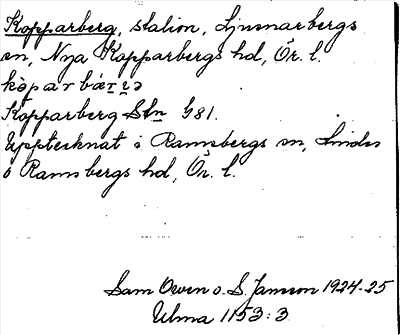 Kopparberg, station, Ljusnarbergs
sn, Nya Kopparbergs hd, Ör. l.
kòparbárjə
Kopparberg Stn G81.
Upptecknat i Ramsbergs sn, Lindes
o Ramsbergs hd, Ör. l.
Sam Owen o. S. Janson 1924-25
Ulma 1153:3